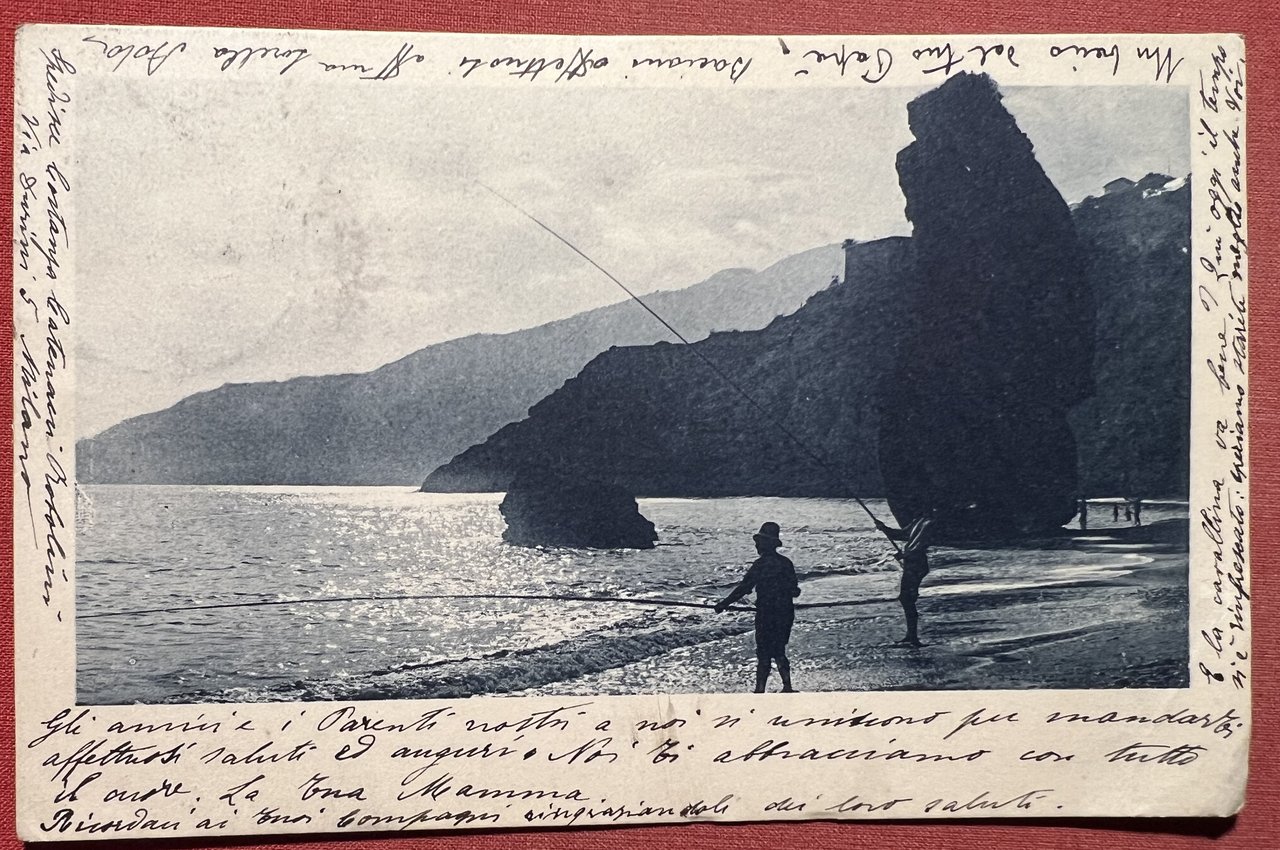 Un bacio dal tuo Papà Baciani affettuosi aff ma sorella
Costanza
Via Durini 5 Milano
Gli amici e i Parenti nostri a noi si uniscono per mandarti
affettuosi saluti ed auguri. Noi ti abbracciamo con tutto
il cuore. La tua Mamma
Ricordaci ai tuoi Compagni ringraziandoli dei loro saluti.
E la cavallina va bene? Qui oggi il tempo
si è rinfrescato: speriamo starete meglio anche Voi.